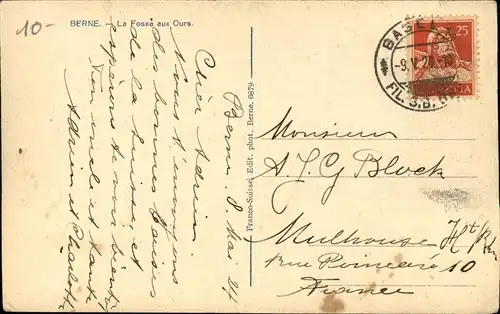 10-
BERNE. - La Fosse aux Ours.
Berne. 8 Mai 24
Cher Adrien
Nous t'envoyons
des bonnes baises
de la Suisse, et
espérons te voir bientôt
Ton oncle et tante
Adrien et Charlotte
Franco-Suisse, Edit. phot. Berne, 6879
BASEL
-9.V.24.-10
FIL. S.B.B.
25
HELVETIA
Monsieur
A. J. G Block
Mulhouse Ht Rhin
Rue Poincaré 10
France